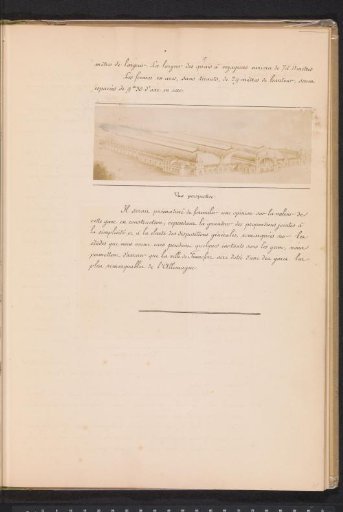 mètres de largeur. La largeur des quais à voyageurs variera de 7 à 11 mètres
Les fermes en arcs, sans tirants, de 29 mètres de hauteur, seront
espacées de 9m30 d'axe en axe.
Vue perspective
Il serait prématuré de formuler une opinion sur la valeur de
cette gare en construction, cependant la grandeur des proportions jointes à
la simplicité et à la clarté des dispositions générales, remarquées sur les
études que nous avons eues pendant quelques instants sous les yeux, nous
permettent d'assurer que la ville de Francfort sera dotée d'une des gares les
plus remarquables de l'Allemagne.